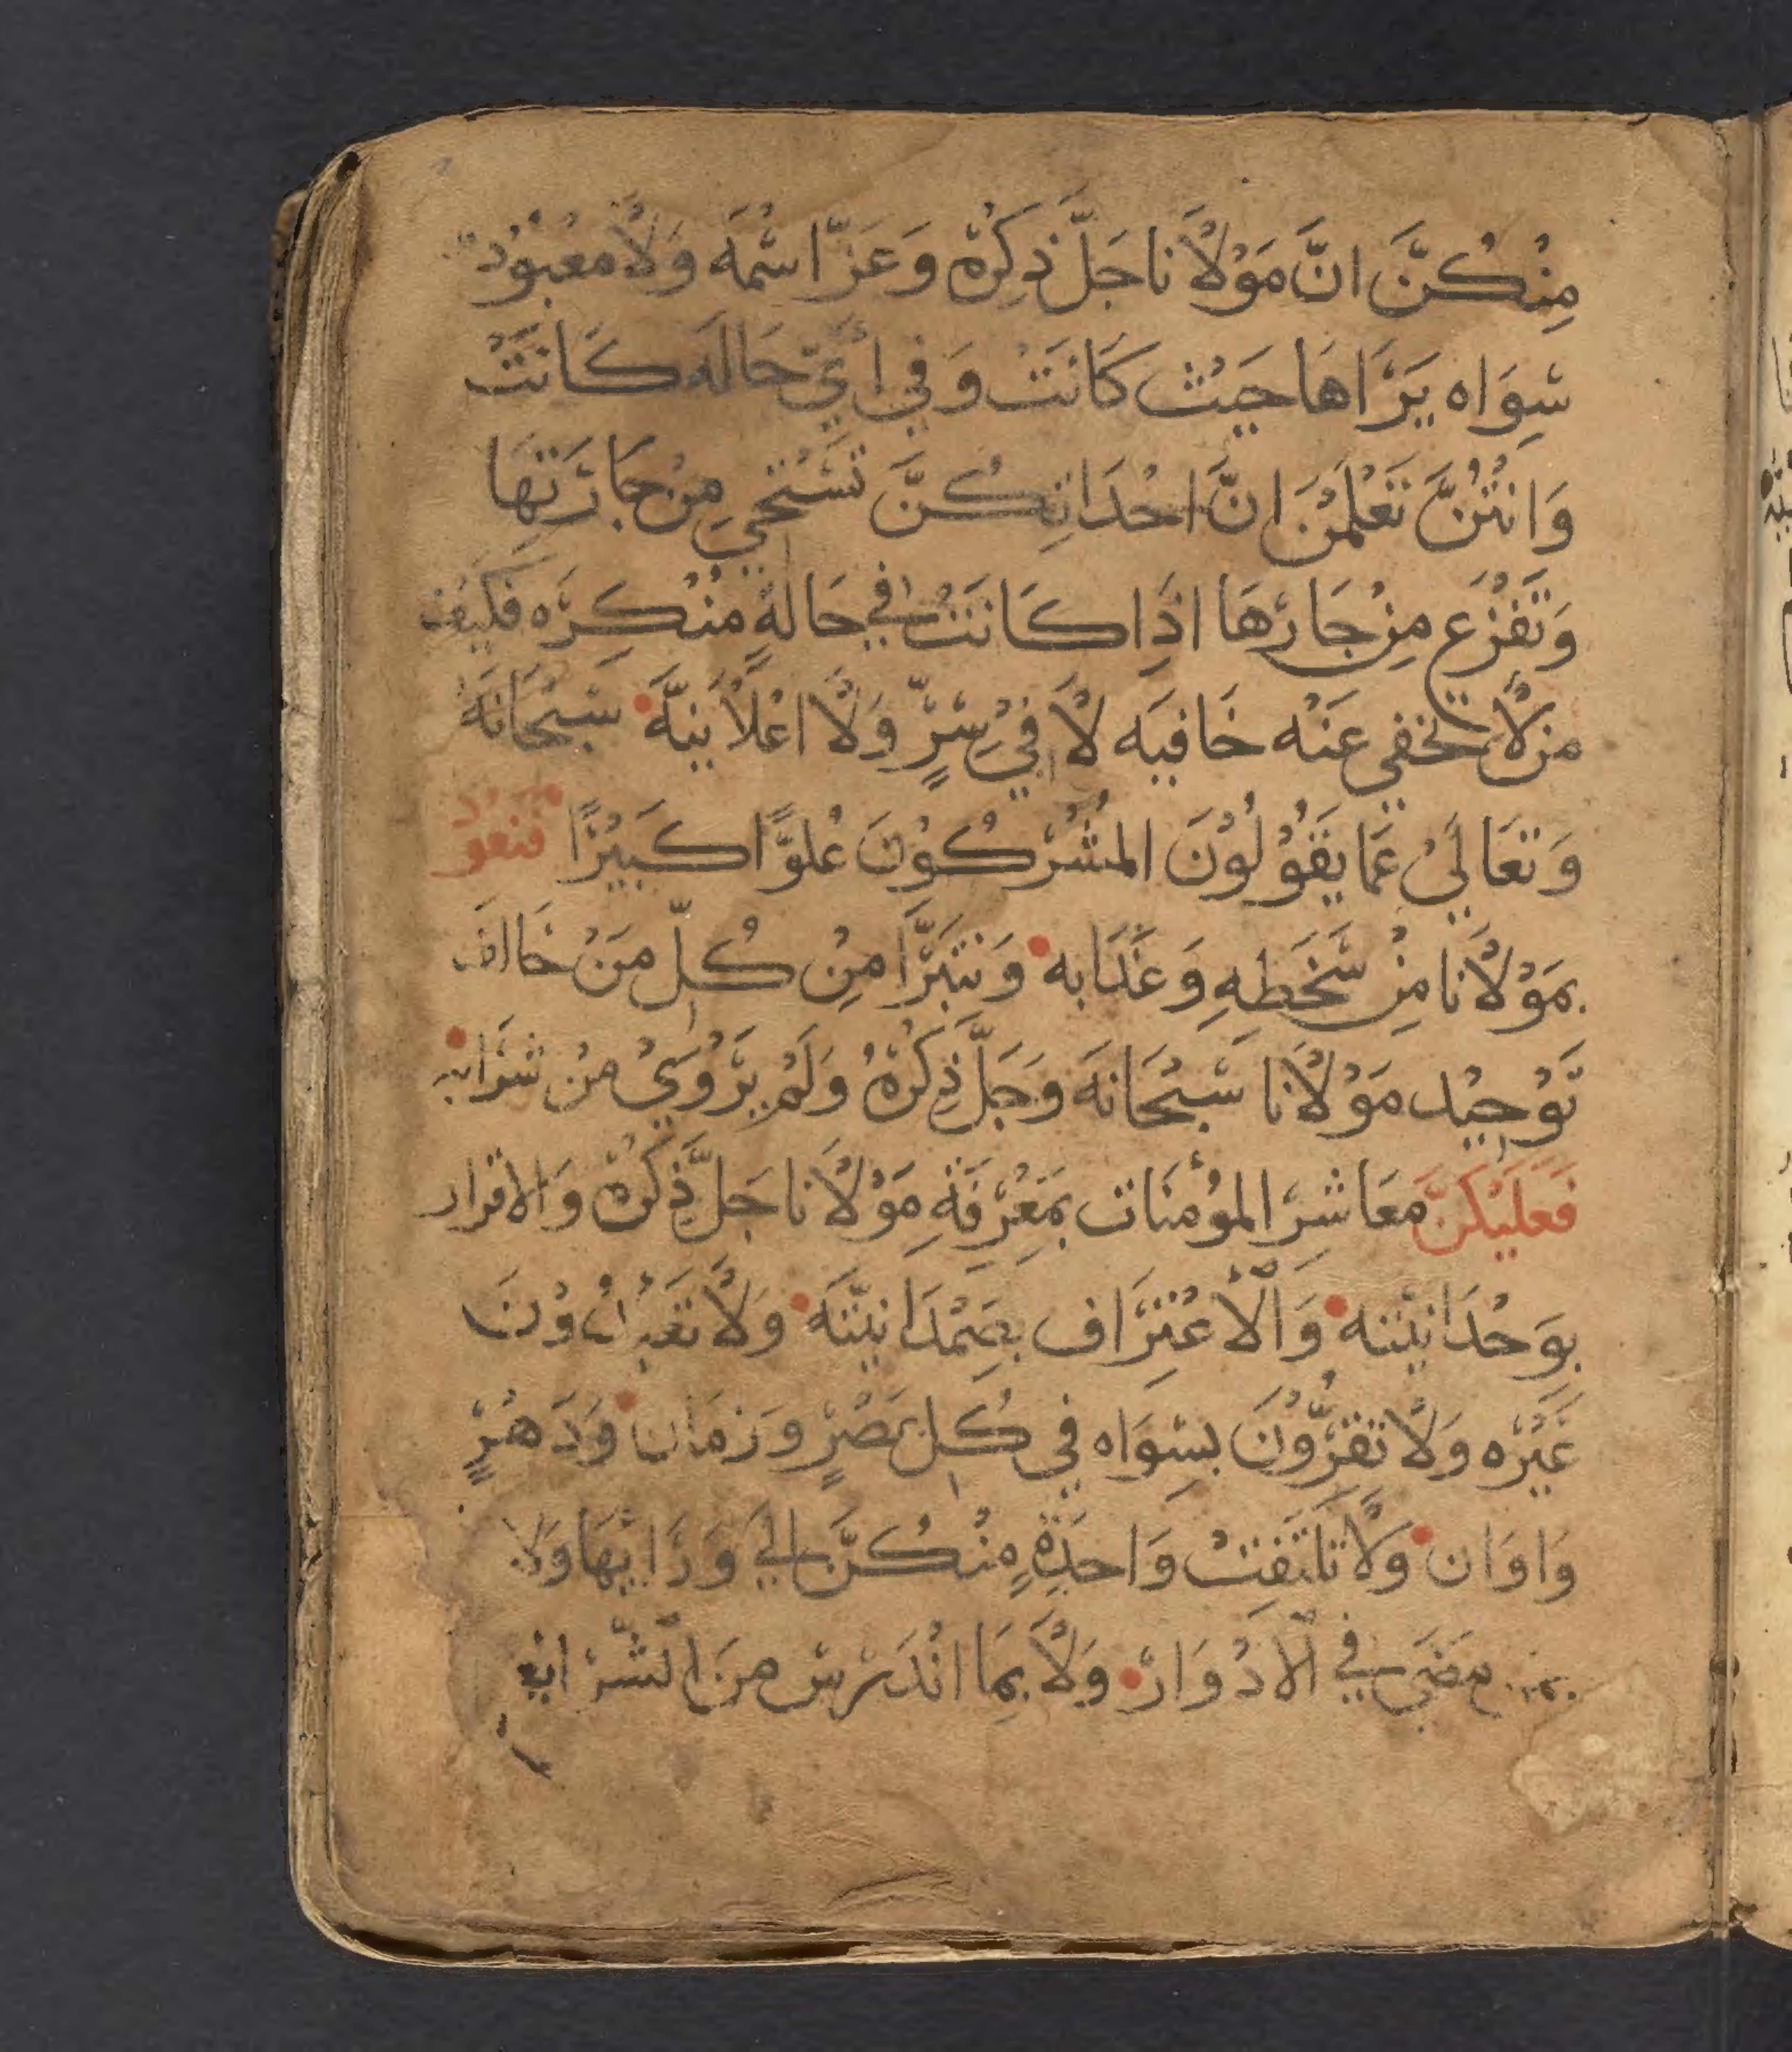 مِنْكُنَّ انَّ مَوْلَانا جَلَّ ذِكرُهْ وَعَزَّ اسْمُه وَلَا مَعْبُودْ
سِوَاه يَرَاهَا حَيْث كَانَتْ وَفي أيّ حَالَه كَانَتْ
وَانتُنَّ تَعْلَمْنَ انَّ احْدَاتِكُنَّ تَسْتَحِي مِنْ جَارَتهَا
وَتَفْزَع مِنْ جَارهَا اذَا كَانَتْ في حَالةٍ مُنْكِرَه فَكَيْف
من لَا تخفي عَنْه خَافيَه لَا فِيْ سِرٍّ وَلَا اعْلَانيَّه سُبْحَانَهُ
وَتعَالَيْ عَمَا يَقُوْلُوْنَ المُشْرِكُوْنَ عُلوًّا كَبيْرًا فنعُوْد
بمَوْلَانا مِنْ سَّخَطِهِ وَعَدَابه وَنتبَرَّا مِنْ كُلّ مَنْ خَالف
تَوْحِيْد مَوْلَانا سُبْحَانَه وَجَلَّ ذِكرُهُ وَلَمْ يَرْوَيْ منْ شرَابه
فَعَلَيْكنَّ مَعَاشِرَ المؤْمنَات بمَعْرِفَةِ مَوْلَانا جَلَّ ذِكرُهْ وَالاقرار
بوَحْدَانيّتِه وَالاعْتِرَاف بصَمْدَانيّتَه وَلَا تَعْبُدُوْنَ
غَيْرَه وَلَا تقِرُّوْنَ بسِوَاه في كُل عَصْرٍ وَزمَان وَدَهْرٍ
وَاوَان وَلَا تلتَفِتْ وَاحدَةٍ مِنْكُنَّ الي وَرَايهَا وَلا
بمَا مضَى في الادْوَارْ وَلَا بمَا انْدَرَسَ منَ الشَّرَايع